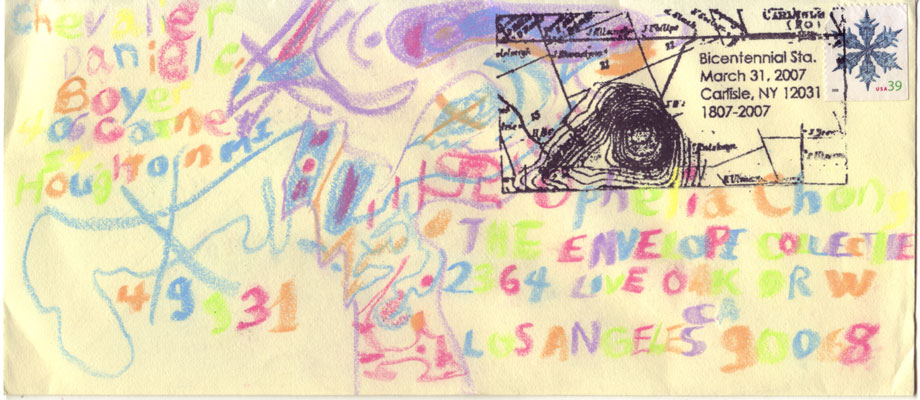 Chevalier
Daniel C.
Boyer
Houghton MI
49931
CARLISLE
Bicentennial Sta.
March 31, 2007
Carlisle, NY 12031
1807-2007
USA 39
Ophelia Chong
THE ENVELOPE COLLECTIVE
2364 LIVE OAK DR W
LOS ANGELES CA 90068